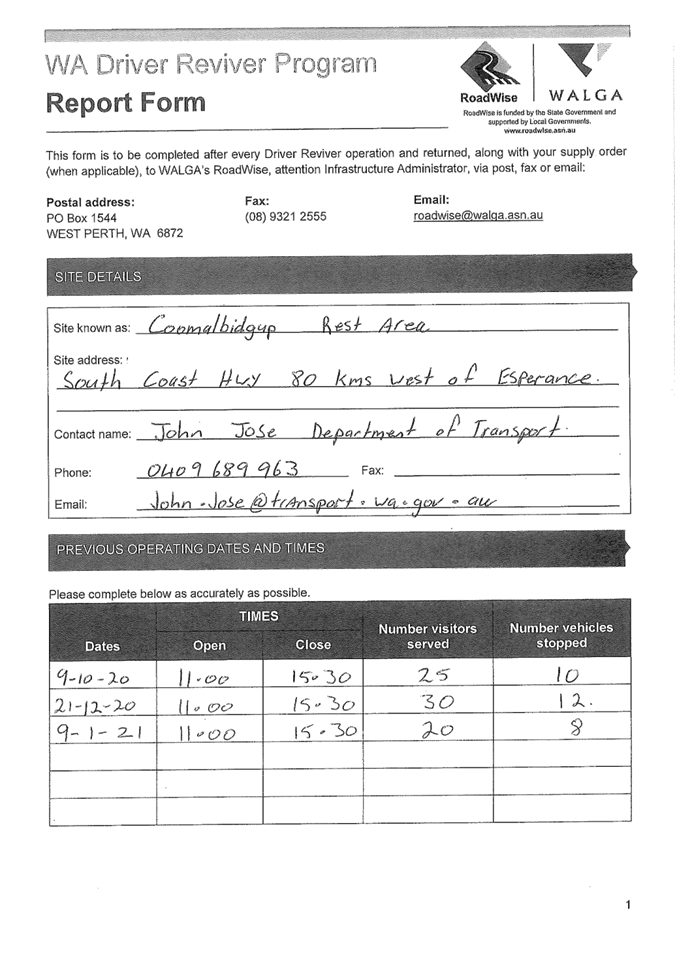 WA Driver Reviver Program
Report Form
RoadWise
WALGA
RoadWise is funded by the State Government and
supported by Local Governments.
www.roadwise.asn.au
This form is to be completed after every Driver Reviver operation and returned, along with your supply order
(when applicable), to WALGA's RoadWise, attention Infrastructure Administrator, via post, fax or email:
Postal address: Fax: Email:
PO Box 1544 (08) 9321 2555 roadwise@walga.asn.au
WEST PERTH, WA 6872
SITE DETAILS
Site known as: Coomalbidgup Rest Area
Site address:
South Coast Hwy 80 kms west of Esperance.
Contact name: John Jose Department of Transport.
Phone: 0409 689 963 Fax:
Email: John.Jose@transport.wa.gov.au
PREVIOUS OPERATING DATES AND TIMES
Please complete below as accurately as possible.
TIMES
Dates Open Close Number visitors served Number vehicles stopped
9-10-20 11.00 15.30 25 10
21-12-20 11.00 15.30 30 12.
9-1-21 11.00 15.30 20 8
1